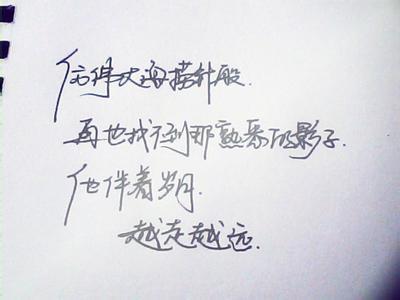 大海捞针般.
再也找不到那熟悉的影子.
他伴着岁月.
越走越远.